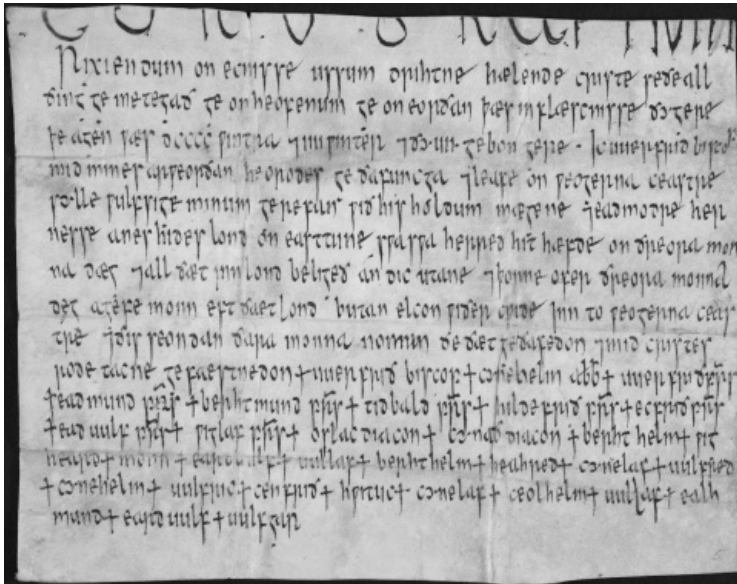 Rixiendum on ecnisse ussum drihtne hælende criste seðe all
ðing ge metegað ge on heofenum ge on eorðan þæs inflæscnisse ðy gere
þe agen wæs dcccc wintra ⁊ iiii winter ⁊ ðy uii gebonn gere · Ic uuerfrið bisco&#x70;
mid mines arweorðan heorodes ge ðafuncga ⁊ leafe on weogerna ceastre
sylle wulfsige minum gerefan wið his holdum mægene ⁊ eadmodre her
nesse anes hides lond on easttune swa swa herred hit hæfde on ðreora mon
na dæg ⁊ all ðæt innlond beligeð an dic utane ⁊ þonne ofer ðreora monna
deg agefe monn eft ðæt lond butan elcon wiðer cwide inn to weogerna ceas
tre ⁊ ðis seondan ðara monna nomun ðe ðæt geðafedon ⁊ mid cristes
rode tacne ge fæstnedon + uuerfrið biscop + cynehelm abb + uuerfrið prs
+ eadmund prs + berhtmund prs + tidbald prs + hildefrið prs + ecfrið prs
+ eaduulf prs + wiglaf prs + oslac diacon + cynað diacon + berhthelm + wig
heard + monn + earduulf + uullaf + berhthelm + heahred + cynelaf + uulfred
+ cynehelm + uulfric + cenfrið + hwituc + cynelaf + ceolhelm + uullaf + ealh
mund + earduulf + uulfgar